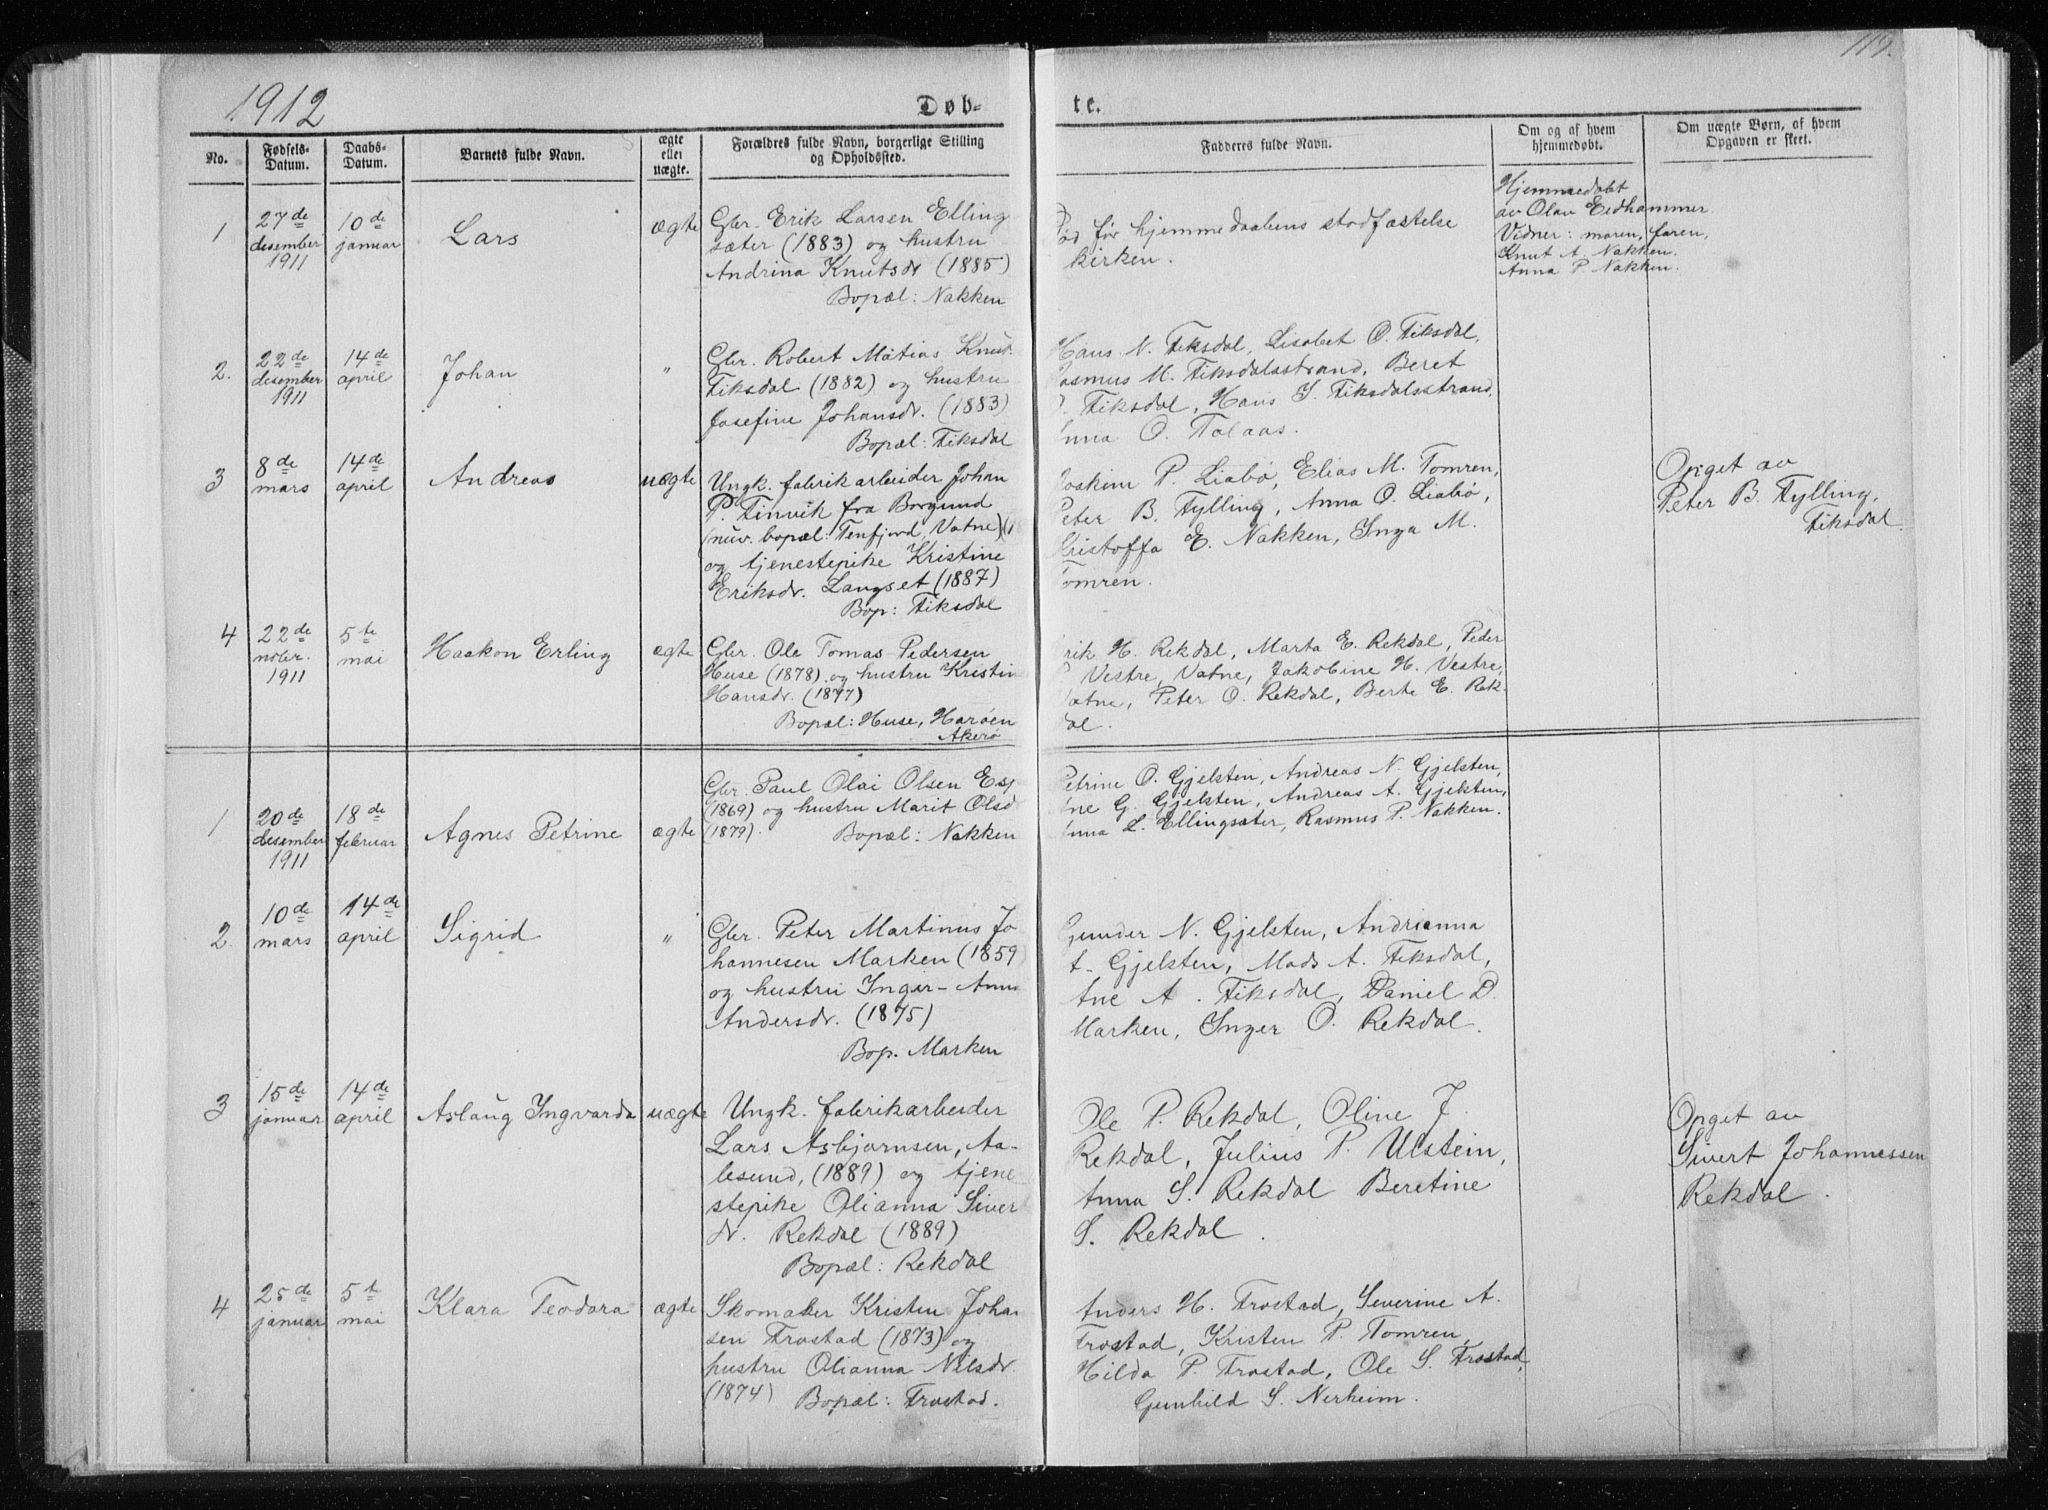 1912
119.
Døb-
te.
No.
Fødsels-
Datum.
Daabs-
Datum.
Barnets fulde Navn.
ægte
eller
uægte.
Forældres fulde Navn, borgerlige Stilling
og Opholdssted.
Fadderes fulde Navn.
Om og af hvem
hjemmedøbt.
Om uægte Børn, af hvem
Opgaven er skeet.
1
27de
desember
1911
10de
januar
Lars
ægte
Gbr. Erik Larsen Elling
sæter (1883) og hustru
Andrina Knutsdr (1885)
Bopæl: Nakken
Død før hjemmedaabens stadfæstelse
kirken.
Hjemmedøbt
av Olav Eidhammer
Vidner: moren, faren,
Knut A. Nakken.
Anna P. Nakken.
2.
22de
desember
1911
14de
april
Johan
"
Gbr. Robert Matias Knud
Fiksdal (1882) og hustru
Josefine Johansdr. (1883)
Bopæl: Fiksdal
Hans N. Fiksdal, Lisabet O. Fiksdal,
Rasmus M. Fiksdalsstrand, Beret
Fiksdal, Hans S. Fiksdalsstrand,
Anna O. Tolaas.
3
8de
mars
14de
april
Andreas
uægte
Ungk. fabrikarbeider Johan
P. Finvik fra Borgund
(nuv. bopæl: Tenfjord, Vatne) (1
og tjenestepike Kristine
Eriksdr. Langset (1887)
Bop: Fiksdal
Joakim P. Liabø, Elias M. Tomren,
Peter B. Fylling, Anna O. Liabø,
Kristoffa E. Nakken, Inga M.
Tomren.
Opget av
Peter B. Fylling,
Fiksdal.
4
22de
nobr.
1911
5te
mai
Haakon Erling
ægte
Gbr. Ole Tomas Pedersen
Huse (1878) og hustru Kristin
Hansdr. (1877)
Bopæl: Huse, Harøen
Akerø
Erik H. Rekdal, Marta E. Rekdal, Peder
P Vestre, Vatne, Jakobine H. Vestre,
Vatne, Peter O. Rekdal, Berte E. Rek-
dal.
1
20de
desember
1911
18de
februar
Agnes Petrine
ægte
Gbr. Paul Olai Olsen Esp
(1869) og hustru Marit Olsd
(1879).
Bopæl: Nakken
Petrine O. Gjelsten, Andreas N. Gjelsten,
Ane G. Gjelsten, Andreas A. Gjelsten,
Anna L. Ellingsæter, Rasmus P. Nakken.
2
10de
mars
14de
april
Sigrid
"
Gbr. Peter Martinus Jo
hannesen Marken (1859
og hustru Inger-Anna
Andersdr. (1875)
Bop. Marken
Gunder N. Gjelsten, Andrianna
A. Gjelsten, Mads A. Fiksdal,
Ane A. Fiksdal, Daniel D.
Marken, Inger O. Rekdal.
3
15de
januar
14de
april
Aslaug Ingvarda
uægte
Ungk. fabrikarbeider
Lars Asbjørnsen, Aa-
lesund, (1889) og tjene-
stepike Olianna Siver
dr. Rekdal (1889)
Bopæl: Rekdal
Ole P. Rekdal, Oline J.
Rekdal, Julius P. Ulstein,
Anna S. Rekdal Beretine
S. Rekdal.
Opget av
Sivert Johannessen
Rekdal.
4
25de
januar
5te
mai
Klara Teodora
ægte
Skomaker Kristen Johan
sen Frostad (1873) og
hustru Olianna Nilsdr.
(1874)
Bopæl: Frostad.
Anders H. Frostad, Severine A.
Frostad, Kristen P. Tomren,
Hilda P. Frostad, Ole S. Frostad,
Gunhild S. Nerheim.